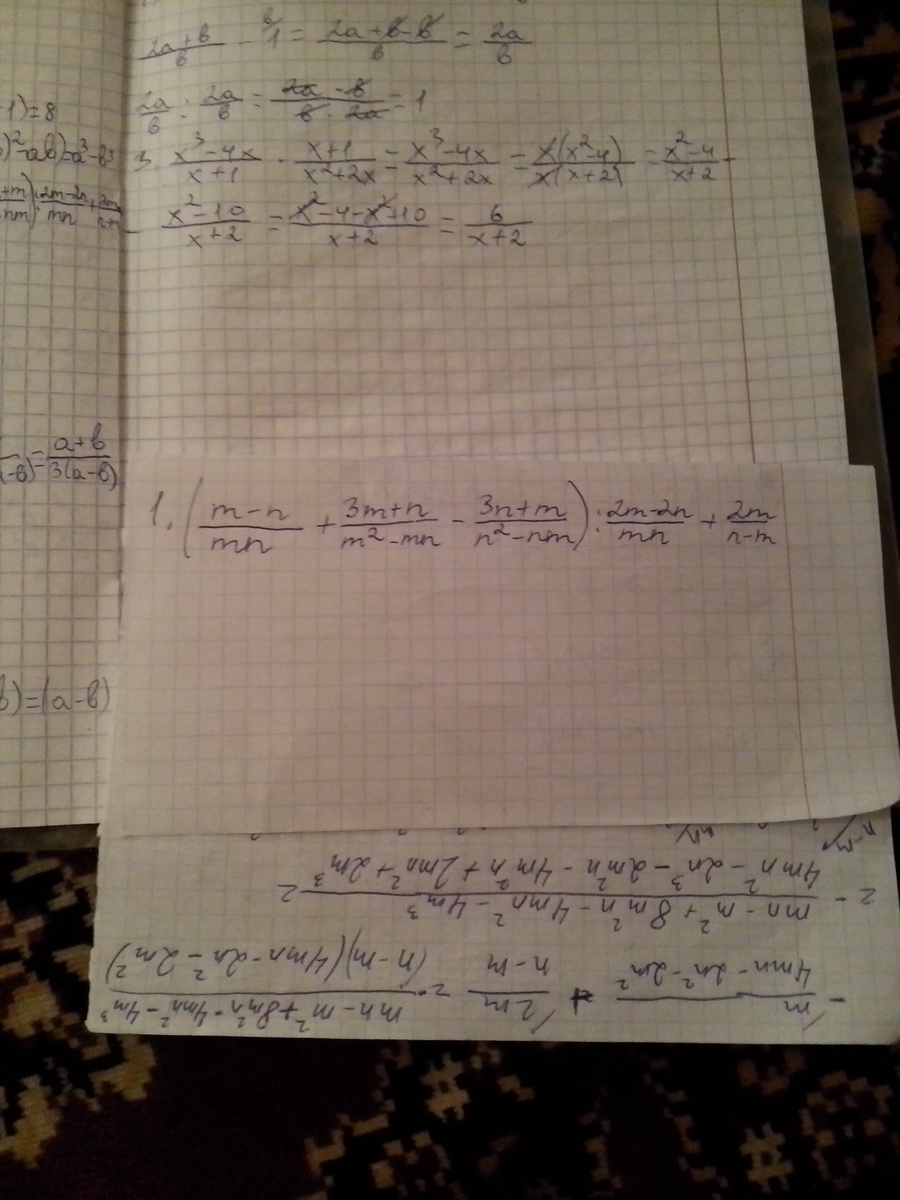 (2a+b)/b - 1 = (2a+b-b)/b = 2a/b
2a/b : 2a/b = (2a · b)/(b · 2a) = 1
3. (x³-4x)/(x+1) · (x+1)/(x²+2x) = (x³-4x)/(x²+2x) = x(x²-4)/x(x+2) = (x²-4)/(x+2) -
- (x²-10)/(x+2) = (x²-4-x²+10)/(x+2) = 6/(x+2)
1)=8
)²-ab)=a³-b³
+m/nm) : (2m-2n)/mn + 2m/(n-m)
-b) = (a+b)/3(a-b)
b)=(a-b)
1. ((m-n)/mn + (3m+n)/(m²-mn) - (3n+m)/(n²-nm)) : (2m-2n)/mn + 2m/(n-m)
- m/(4mn-2n²-2m²) + 2m/(n-m) = (mn-m²+8m²n-4mn²-4m³)/(n-m)(4mn-2n²-2m²)
= (mn-m²+8m²n-4mn²-4m³)/(4mn²-2n³-2m²n-4m²n+2mn²+2m³) =